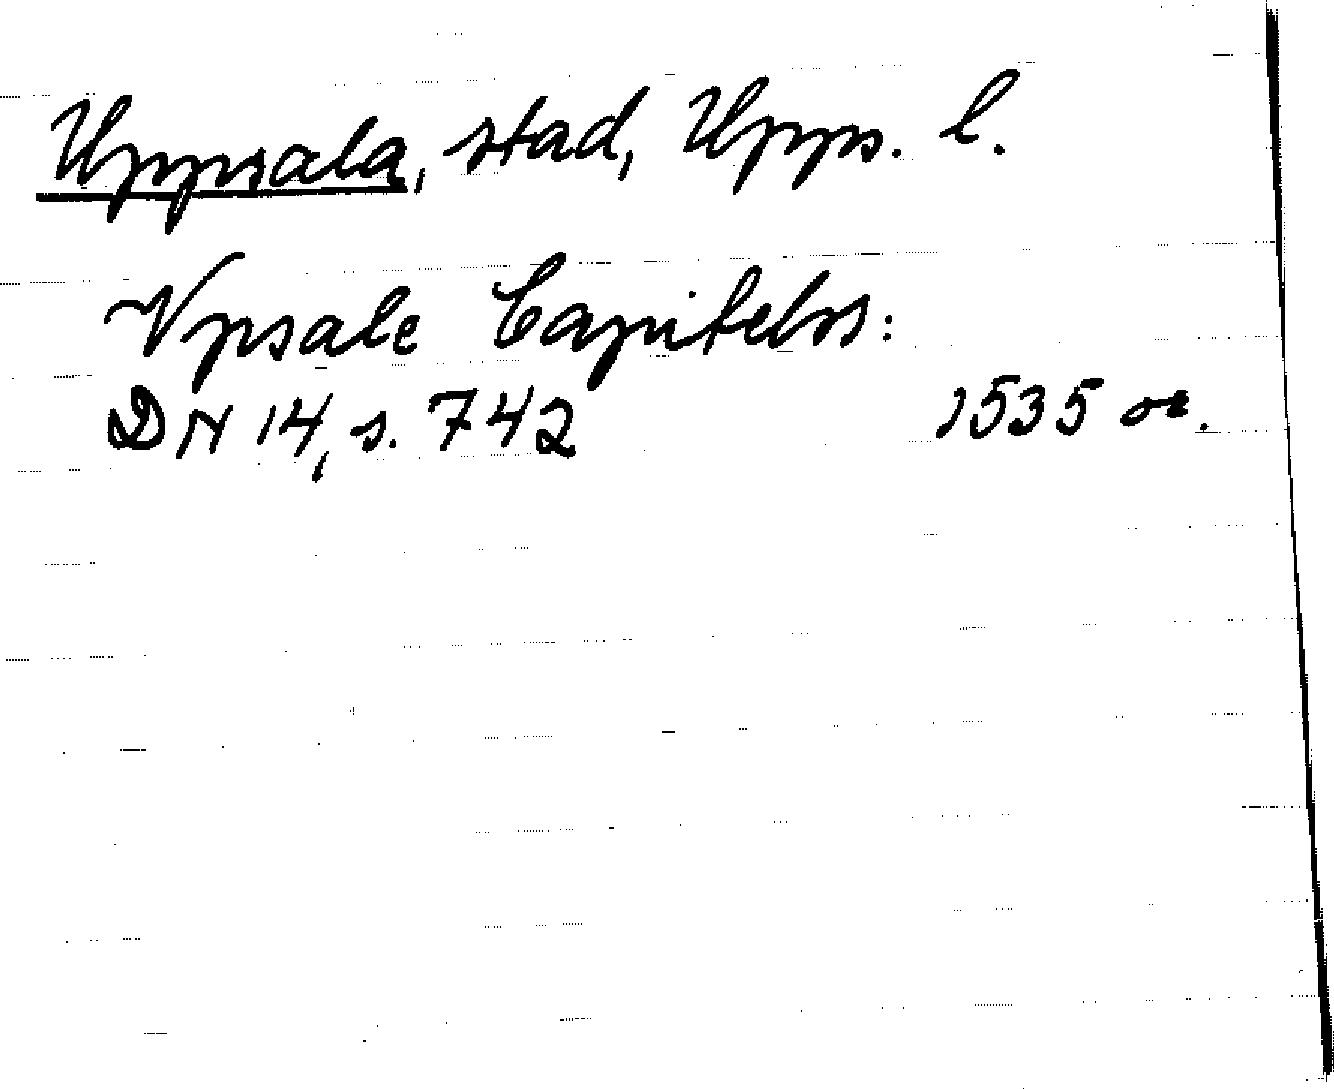 Uppsala, stad, Upps. l.
Vpsale Capitelss:
DN 14, s. 742 1535 or.